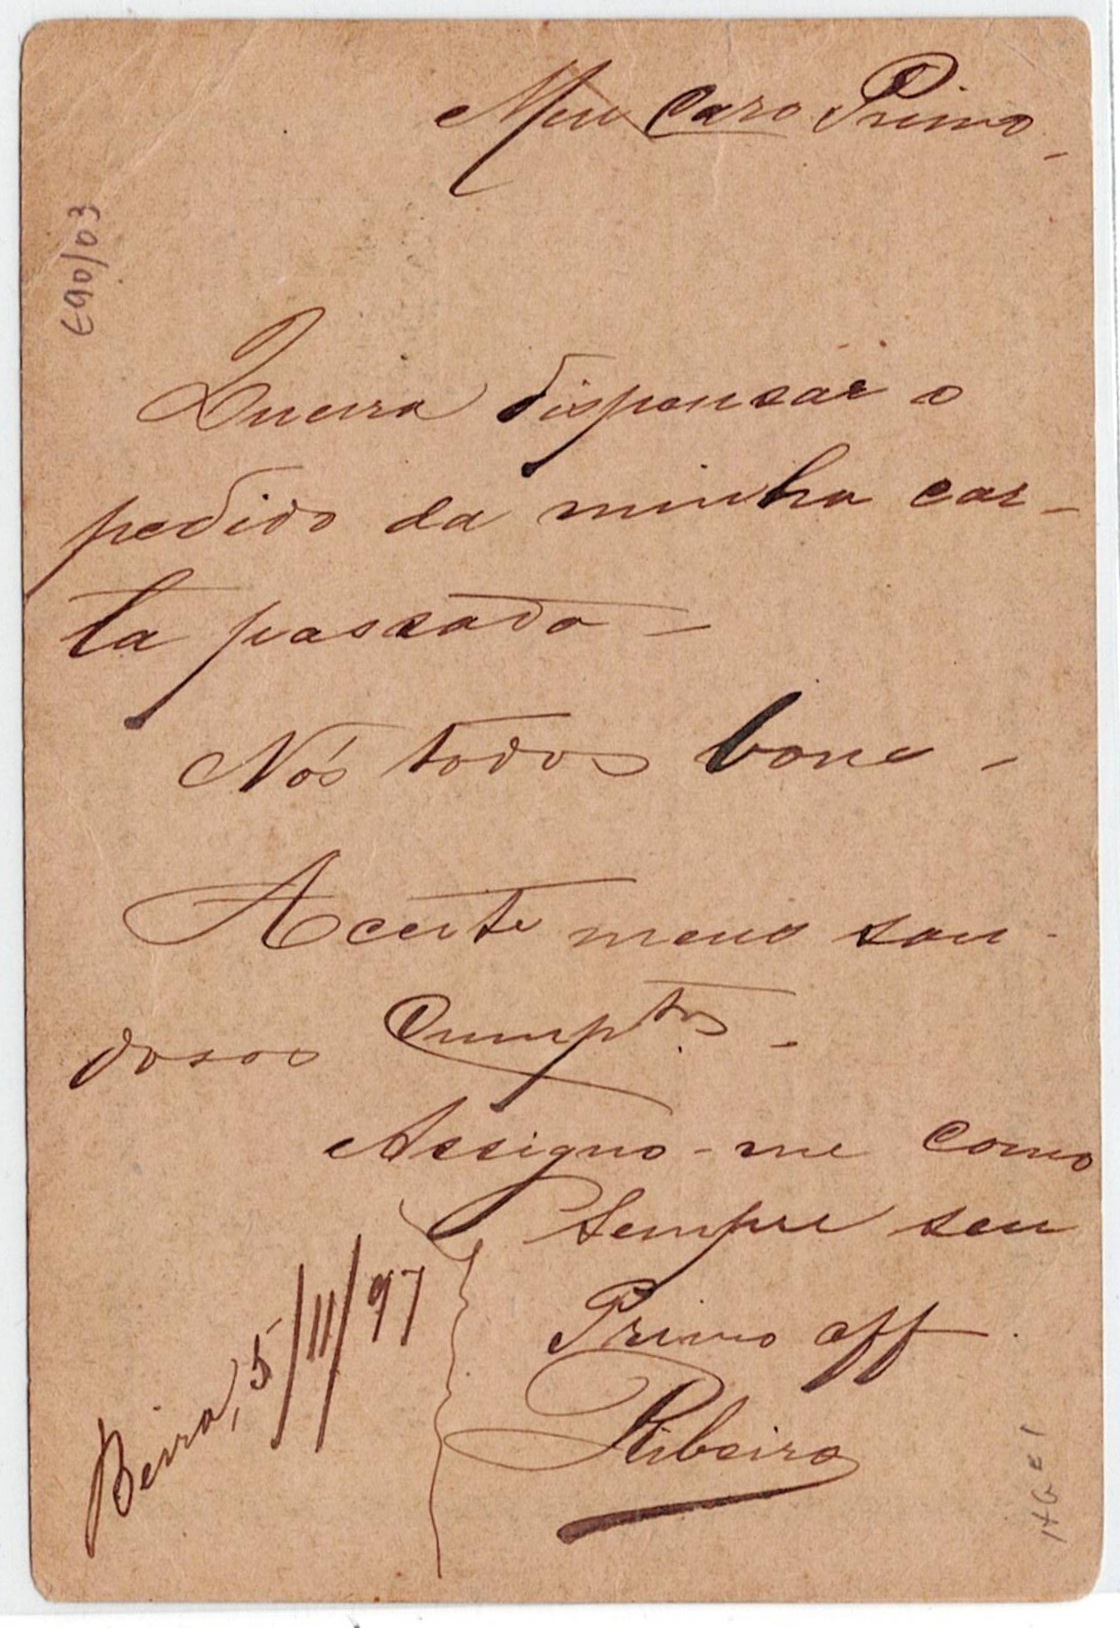 Meu Caro Primo
Queira dispensar o
pedido da minha car-
ta passada -
Nós todos bons -
Aceite meus sau-
dosos Cumptos -
Assigno-me como
sempre seu
Primo aff
Ribeiro
Beira, 5/11/97
690/03